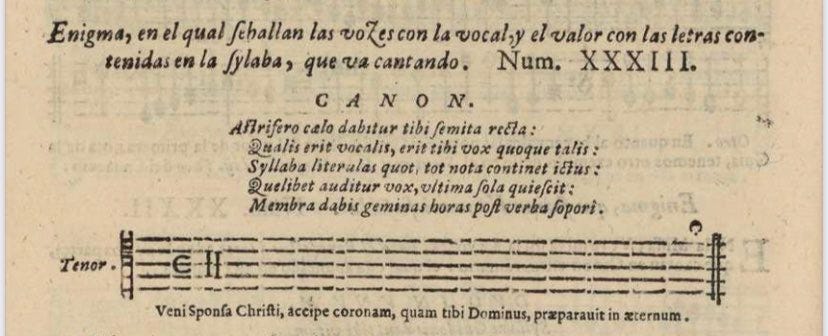 Enigma, en el qual ſe hallan las voZes con la vocal, y el valor con las letras con-
tenidas en la ſylaba, que va cantando. Num. XXXIII.
CANON.
Aſtrifero cælo dabitur tibi ſemita recta:
Qualis erit vocalis, erit tibi vox quoque talis:
Syllaba literulas quot, tot nota continet ictus:
Quelibet auditur vox, vltima ſola quieſcit:
Membra dabis geminas horas poſt verba ſopori.
Tenor.
Veni Sponſa Chriſti, accipe coronam, quam tibi Dominus, præparauit in æternum.